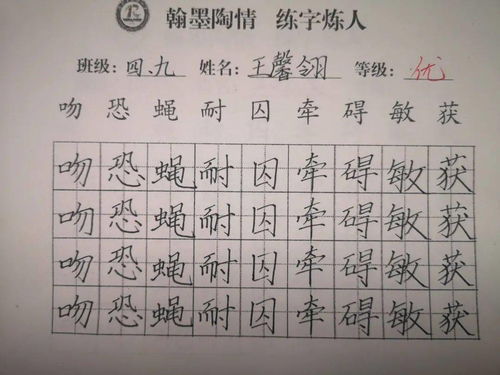 翰墨陶情 练字炼人
班级：四、九 姓名：王馨翎 等级：优
吻 恐 蝇 耐 囚 牵 碍 敏 获
吻 恐 蝇 耐 囚 牵 碍 敏 获
吻 恐 蝇 耐 囚 牵 碍 敏 获
吻 恐 蝇 耐 囚 牵 碍 敏 获
吻 恐 蝇 耐 囚 牵 碍 敏 获